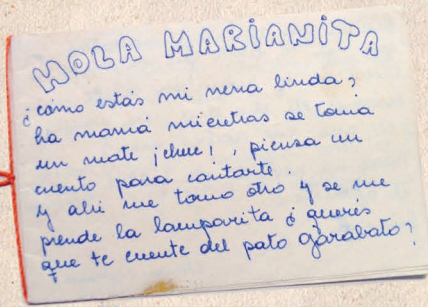 HOLA MARIANITA
¿cómo estás mi nena linda?
ha mamá mientras se toma
un mate ¡chuu!, piensa un
cuento para contarte.
y ahi me tomo otro y se me
prende la lamparita ¿querés
que te cuente del pato garabato?